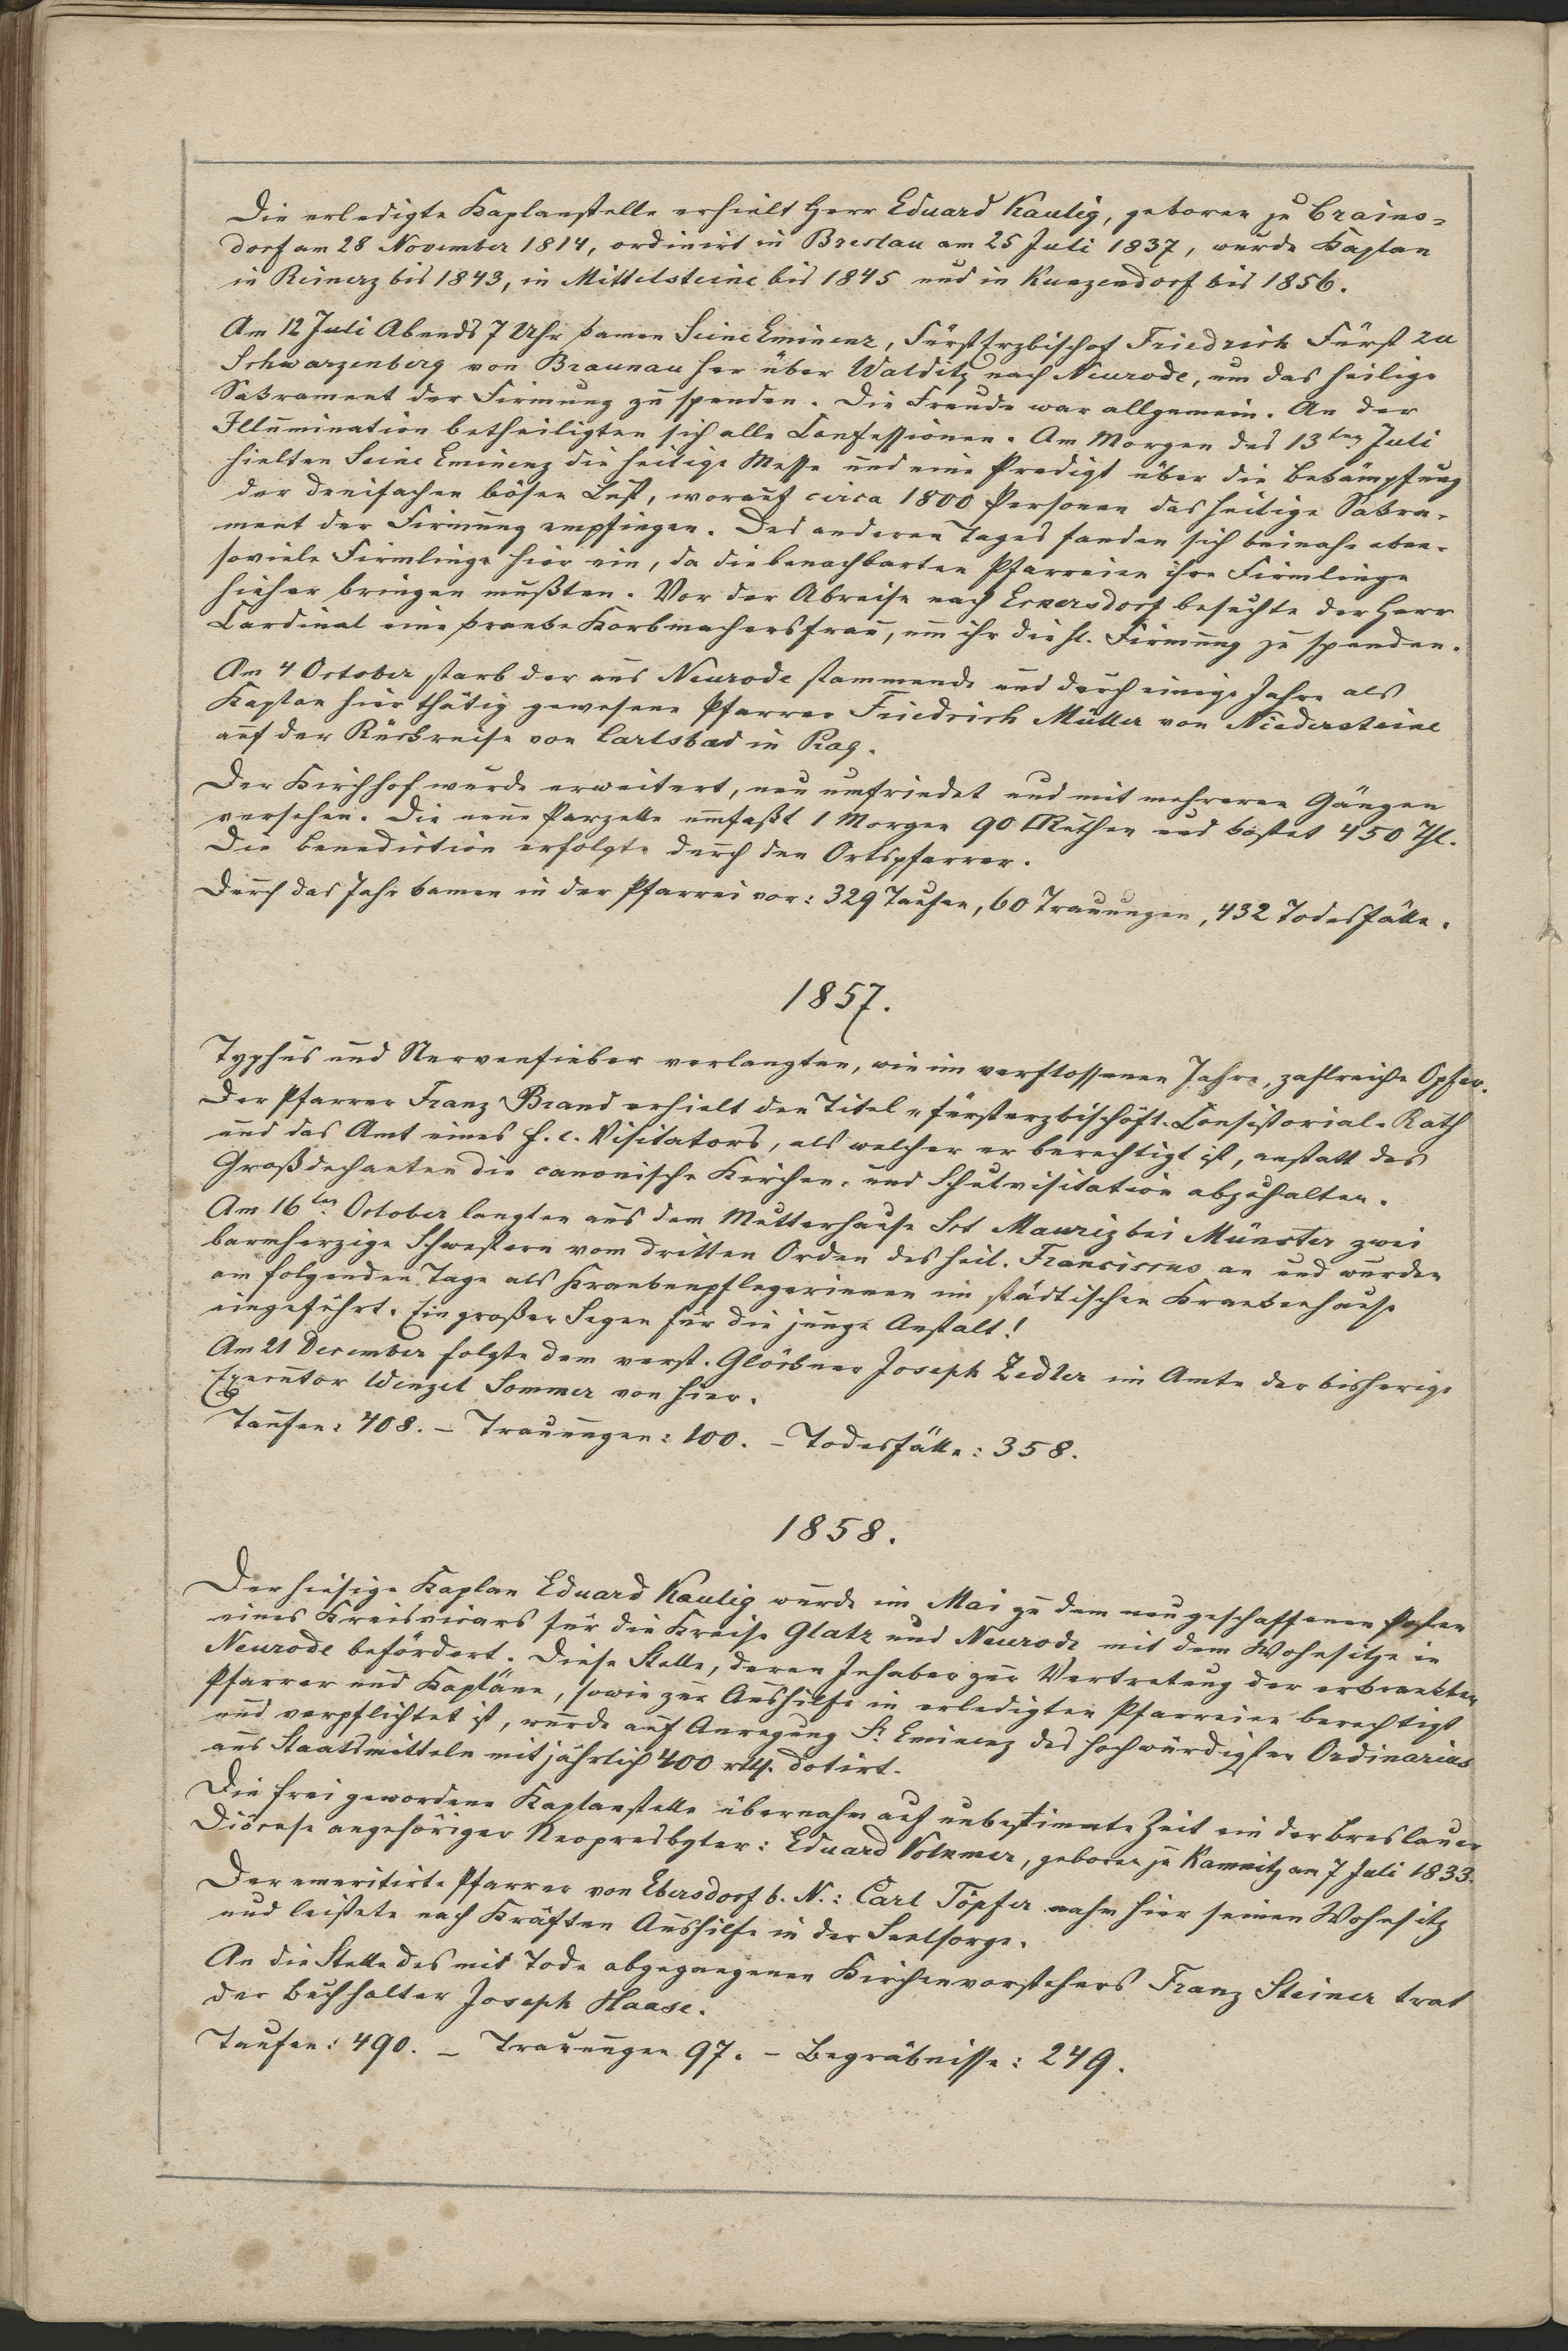 Die erledigte Kaplanstelle erhielt Herr Eduard Kaulig, geboren zu Crains-
dorf am 28 November 1814, ordinirt in Breslau am 25 Juli 1837, wurde Kaplan
in Reinerz bis 1843, in Mittelsteine bis 1845 und in Kunzendorf bis 1856.
Am 12 Juli Abends 7 Uhr kamen Seine Eminenz, Fürst Erzbischof Friedrich Fürst zu
Schwarzenberg von Braunau her über Walditz nach Neurode, um das heilige
Sakrament der Firmung zu spenden. Die Freude war allgemein. An der
Illumination betheiligten sich alle Confessionen. Am Morgen des 13ten Juli
hielten Seine Eminenz die heilige Messe und eine Predigt über die Bekämpfung
der dreifachen bösen Lust, worauf circa 1800 Personen das heilige Sakra-
ment der Firmung empfingen. Des anderen Tages fanden sich beinahe eben-
soviele Firmlinge hier ein, da die benachbarten Pfarreien ihre Firmlinge
hieher bringen mußten. Vor der Abreise nach Eckersdorf besuchte der Herr
Cardinal eine kranke Korbmachersfrau, um ihr die hl. Firmung zu spenden.
Am 4 October starb der aus Neurode stammende und durch einige Jahre als
Kaplan hier thätig gewesene Pfarrer Friedrich Müller von Niedersteine
auf der Rückreise von Carlsbad in Prag.
Der Kirchhof wurde erweitert, neu umfriedet und mit mehreren Gängen
versehen. Die neue Parzelle umfaßt 1 Morgen 90 □Ruthen und kostet 450 Thl.
Die Benediction erfolgte durch den Ortspfarrer.
Durch das Jahr kamen in der Pfarrei vor: 329 Taufen, 60 Trauungen, 432 Todesfälle.
1857.
Typhus und Nervenfieber verlangten, wie im verflossenen Jahre, zahlreiche Opfer.
Der Pfarrer Franz Brand erhielt den Titel „fürsterzbischöfl. Consistorial-Rath
und das Amt eines f. e. Visitators, als welcher er berechtigt ist, anstatt des
Großdechanten die canonische Kirchen- und Schulvisitation abzuhalten.
Am 16ten October langten aus dem Mutterhause Sct Mauriz bei Münster zwei
barmherzige Schwestern vom dritten Orden des heil. Franciscus an und wurden
am folgenden Tage als Krankenpflegerinnen im städtischen Krankenhause
eingeführt. Ein großer Segen für die junge Anstalt!
Am 21 December folgte dem verst. Glöckner Joseph Zedler im Amte der bisherige
Executor Wenzel Sommer von hier.
Taufen: 408. – Trauungen: 100. – Todesfälle: 358.
1858.
Der hiesige Kaplan Eduard Kaulig wurde im Mai zu dem neugeschaffenen Posten
eines Kreisvicars für die Kreise Glatz und Neurode mit dem Wohnsitze in
Neurode befördert. Diese Stelle, deren Inhaber zur Vertretung der erkrankten
Pfarrer und Kapläne, sowie zur Aushilfe in erledigten Pfarreien berechtigt
und verpflichtet ist, wurde auf Anregung Sr Eminenz des hochwürdigsten Ordinarius
aus Staatsmitteln mit jährlich 400 rtl. dotirt.
Die frei gewordene Kaplanstelle übernahm auf unbestimmte Zeit ein der Breslauer
Diöcese angehöriger Neopresbyter: Eduard Volkmer, geboren zu Kamnitz am 7 Juli 1833.
Der emeritirte Pfarrer von Ebersdorf b. N.: Carl Töpfer nahm hier seinen Wohnsitz
und leistete nach Kräften Aushilfe in der Seelsorge.
An die Stelle des mit Tode abgegangenen Kirchenvorstehers Franz Steiner trat
der Buchhalter Joseph Haase.
Taufen: 490. – Trauungen 97. – Begräbnisse: 249.